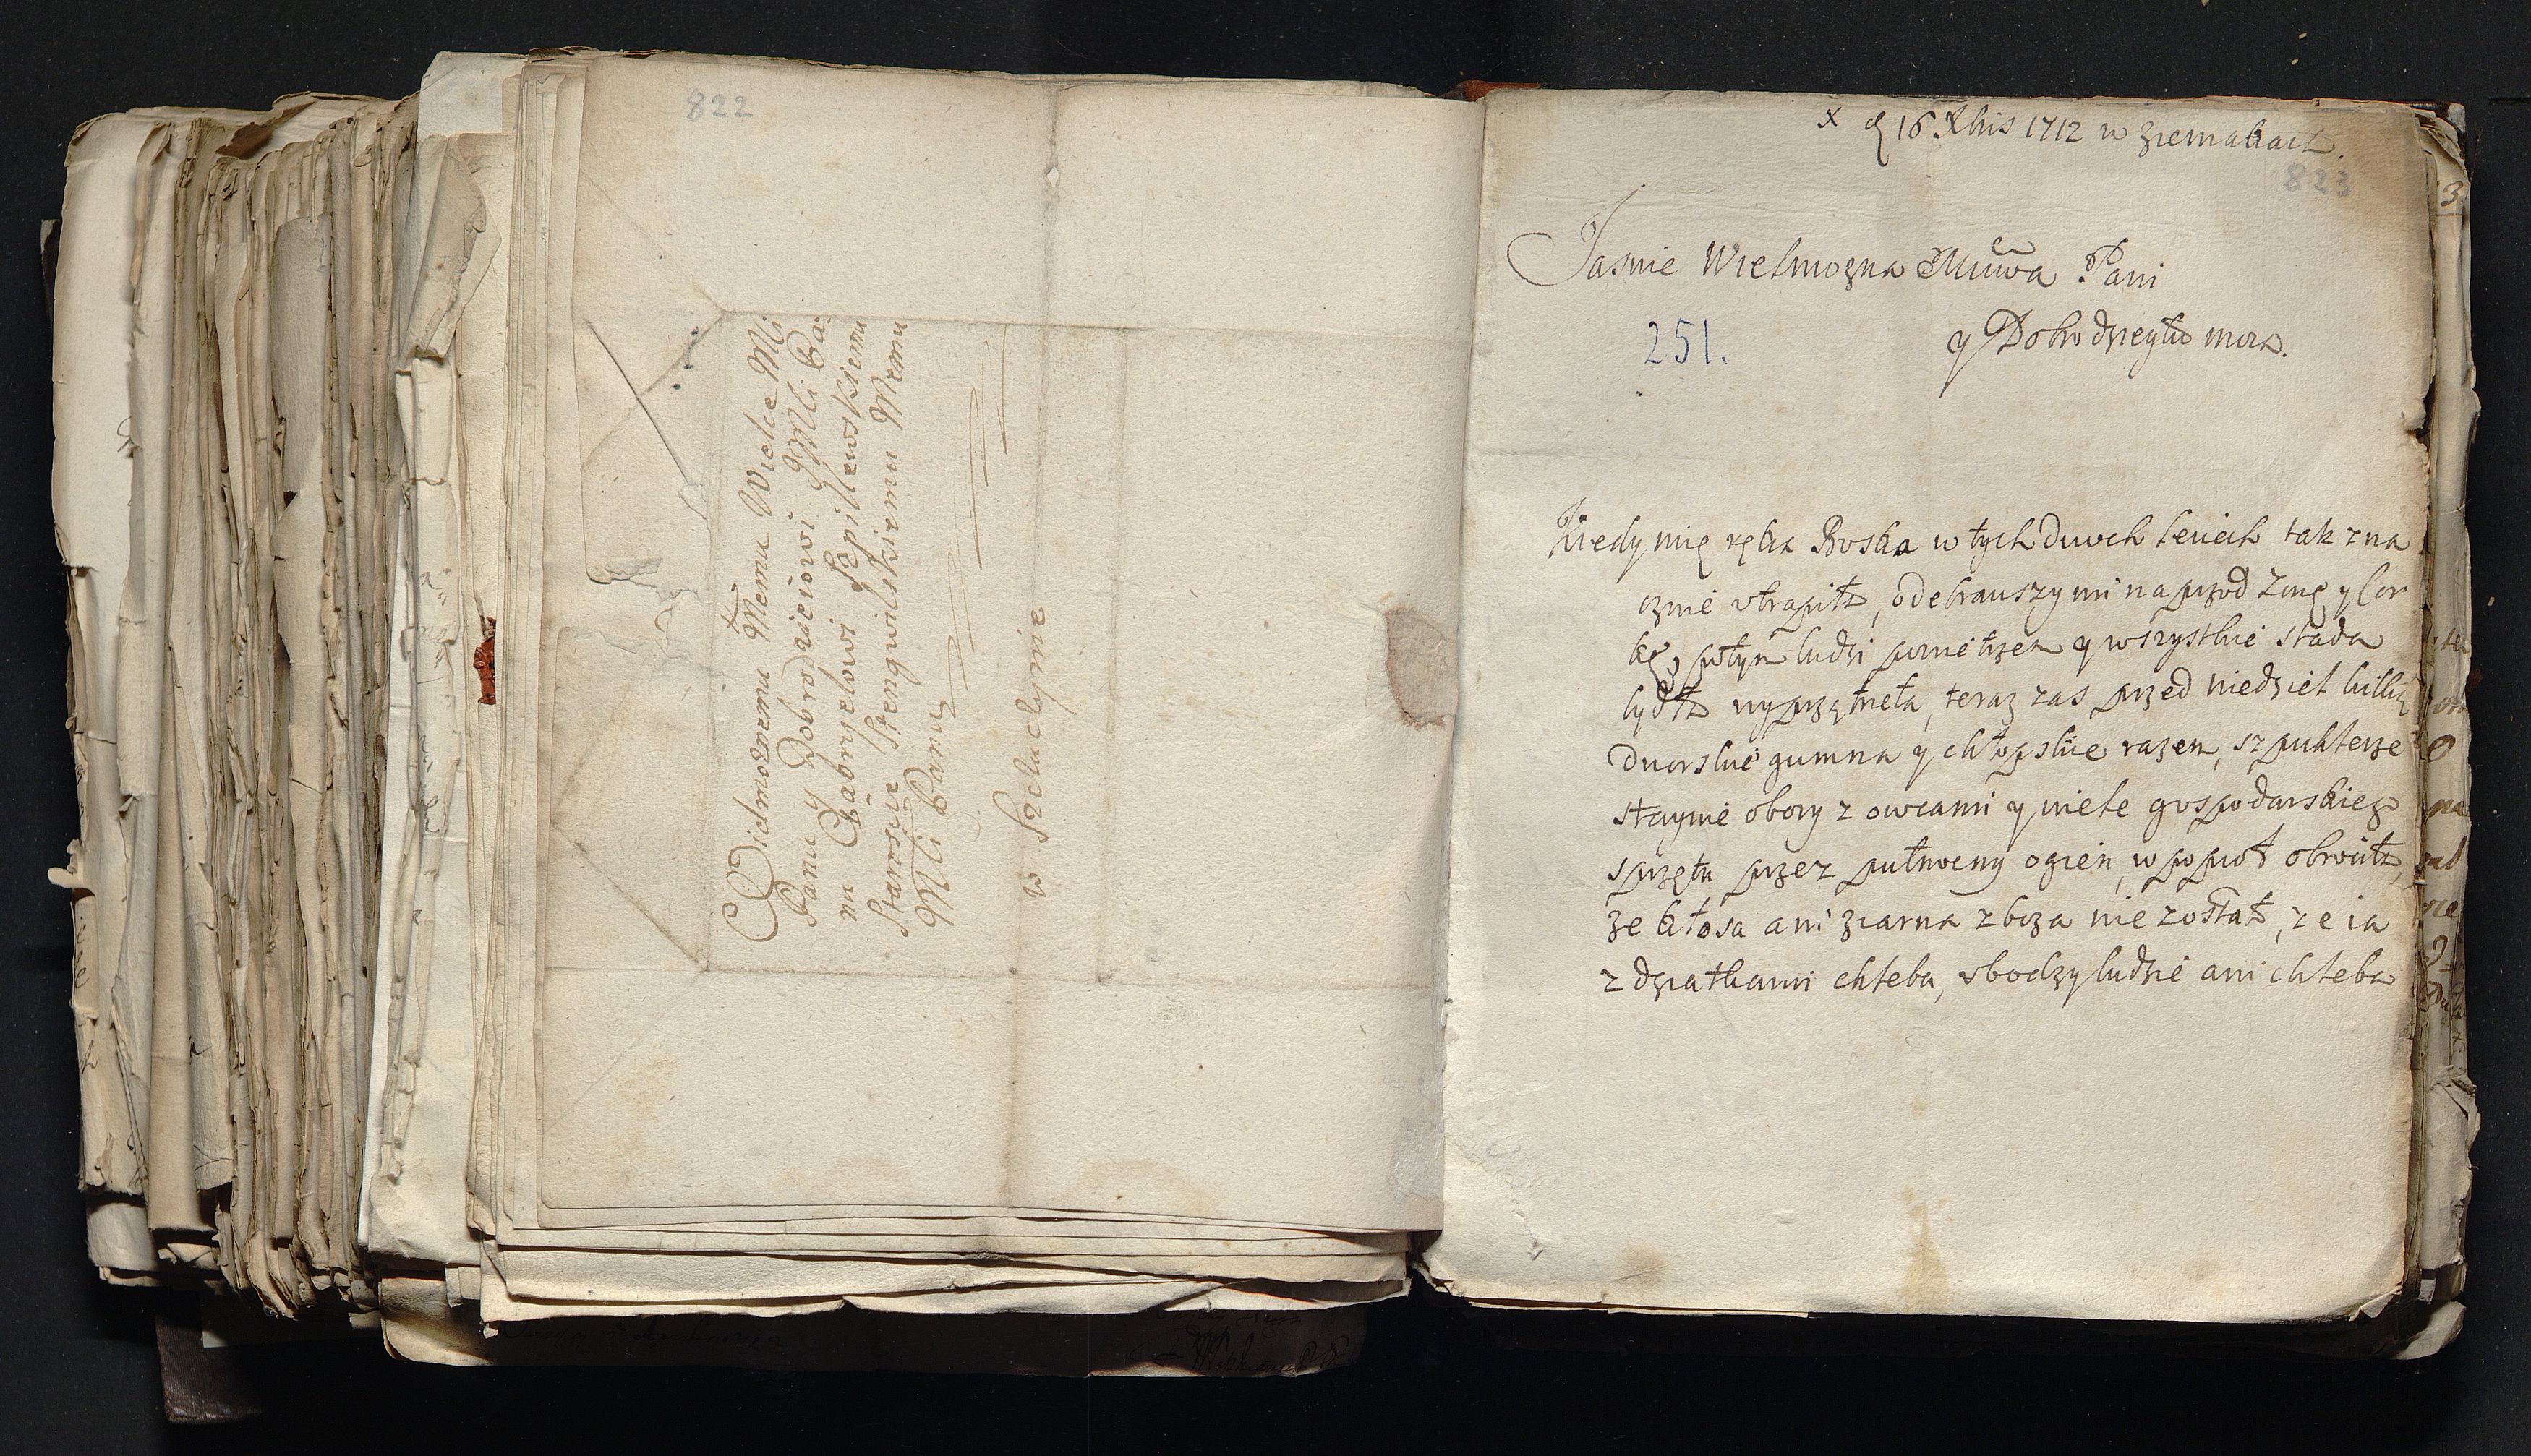 822
Wielmoznemu Memu Wielce Mći
Panu y Dobrodzieiowi JMći Pa:
nu Gabryelowi Szpillewskiemu
Staroscie Stengwilskiemu Memu
Mći Panu
w Szczuczynie
x d 16 Xbris 1712 w
823
Jasnie Wielmozna Mciwa Pani
y Dobrodzieyko moia.
251.
Kiedy mię ręka Boska w tych dwoch leciech tak zna
cznie vtrapiła, odebrawszy mi naprzod Zonę y Cor
kę, potym ludzi powietrzem y wszystkie stada
bydła wyprzątneła, teraz zas przed niedziel kilką
dworskie gumna y chłopskie razem, szpichlerze
staynie obory z owcami y wiele gospodarskiego
sprzętu przez pułnocny ogien, w popioł obrociła,
ze kłosa ani ziarna zboza nie zostało, ze ia
z dziatkami chleba, vbodzy ludzie ani chleba